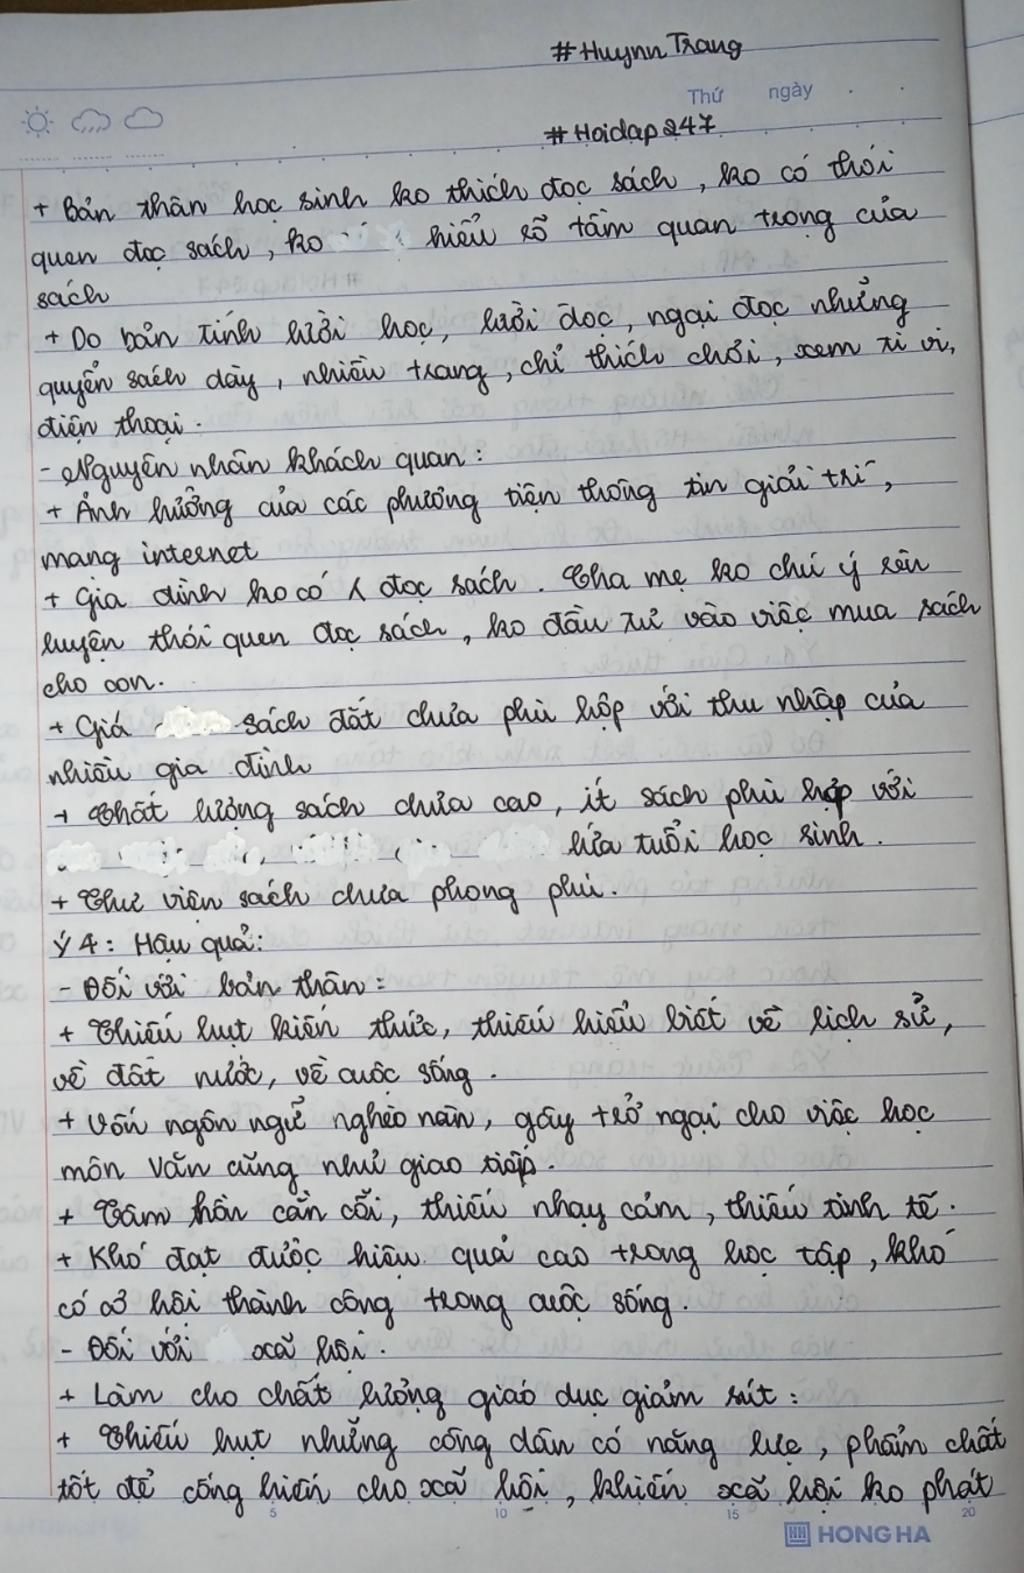 #Huynn Trang
Thứ ngày
#Hoidap247
+ Bản thân học sinh ko thích đọc sách, ko có thói
quen đọc sách, ko hiểu rõ tầm quan trọng của
sách
+ Do bản tính lười học, lười đọc, ngại đọc những
quyển sách dày, nhiều trang, chỉ thích chơi, xem ti vi,
điện thoại.
- Nguyên nhân khách quan:
+ Ảnh hưởng của các phương tiện thông tin giải trí,
mang internet
+ Gia đình ko có đọc sách. Cha mẹ ko chú ý rèn
luyện thói quen đọc sách, ko đầu tư vào việc mua sách
cho con.
+ Giá sách đắt chưa phù hợp với thu nhập của
nhiều gia đình
+ Chất lượng sách chưa cao, ít sách phù hợp với
lứa tuổi học sinh.
+ Thư viện sách chưa phong phú.
Ý 4: Hậu quả:
- Đối với bản thân:
+ Thiếu hụt kiến thức, thiếu hiểu biết về lịch sử,
về đất nước, về cuộc sống.
+ Vốn ngôn ngữ nghèo nàn, gây trở ngại cho việc học
môn Văn cũng như giao tiếp.
+ Tâm hồn cằn cỗi, thiếu nhạy cảm, thiếu tinh tế.
+ Khó đạt được hiệu quả cao trong học tập, khó
có cơ hội thành công trong cuộc sống.
- Đối với xã hội.
+ Làm cho chất lượng giáo dục giảm sút:
+ Thiếu hụt những công dân có năng lực, phẩm chất
tốt để cống hiến cho xã hội, khiến xã hội ko phát
5 10 15 20
HONG HA